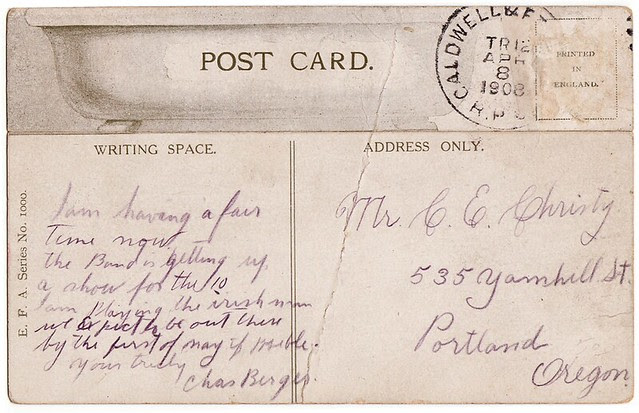 POST CARD.
CALDWELL & E
TR 12
APR
8
1908
R.P.O
PRINTED
IN
ENGLAND.
WRITING SPACE.
I am having a fair
time now.
the Band is getting up
a show for the 10
I am Playing the irish man
we Expect to be out there
by the first of may if posible.
your truly
Chas Berger.
E. F. A. Series No. 1000.
ADDRESS ONLY.
Mr. C. E. Christy
535 Yamhill St.
Portland
Oregon.